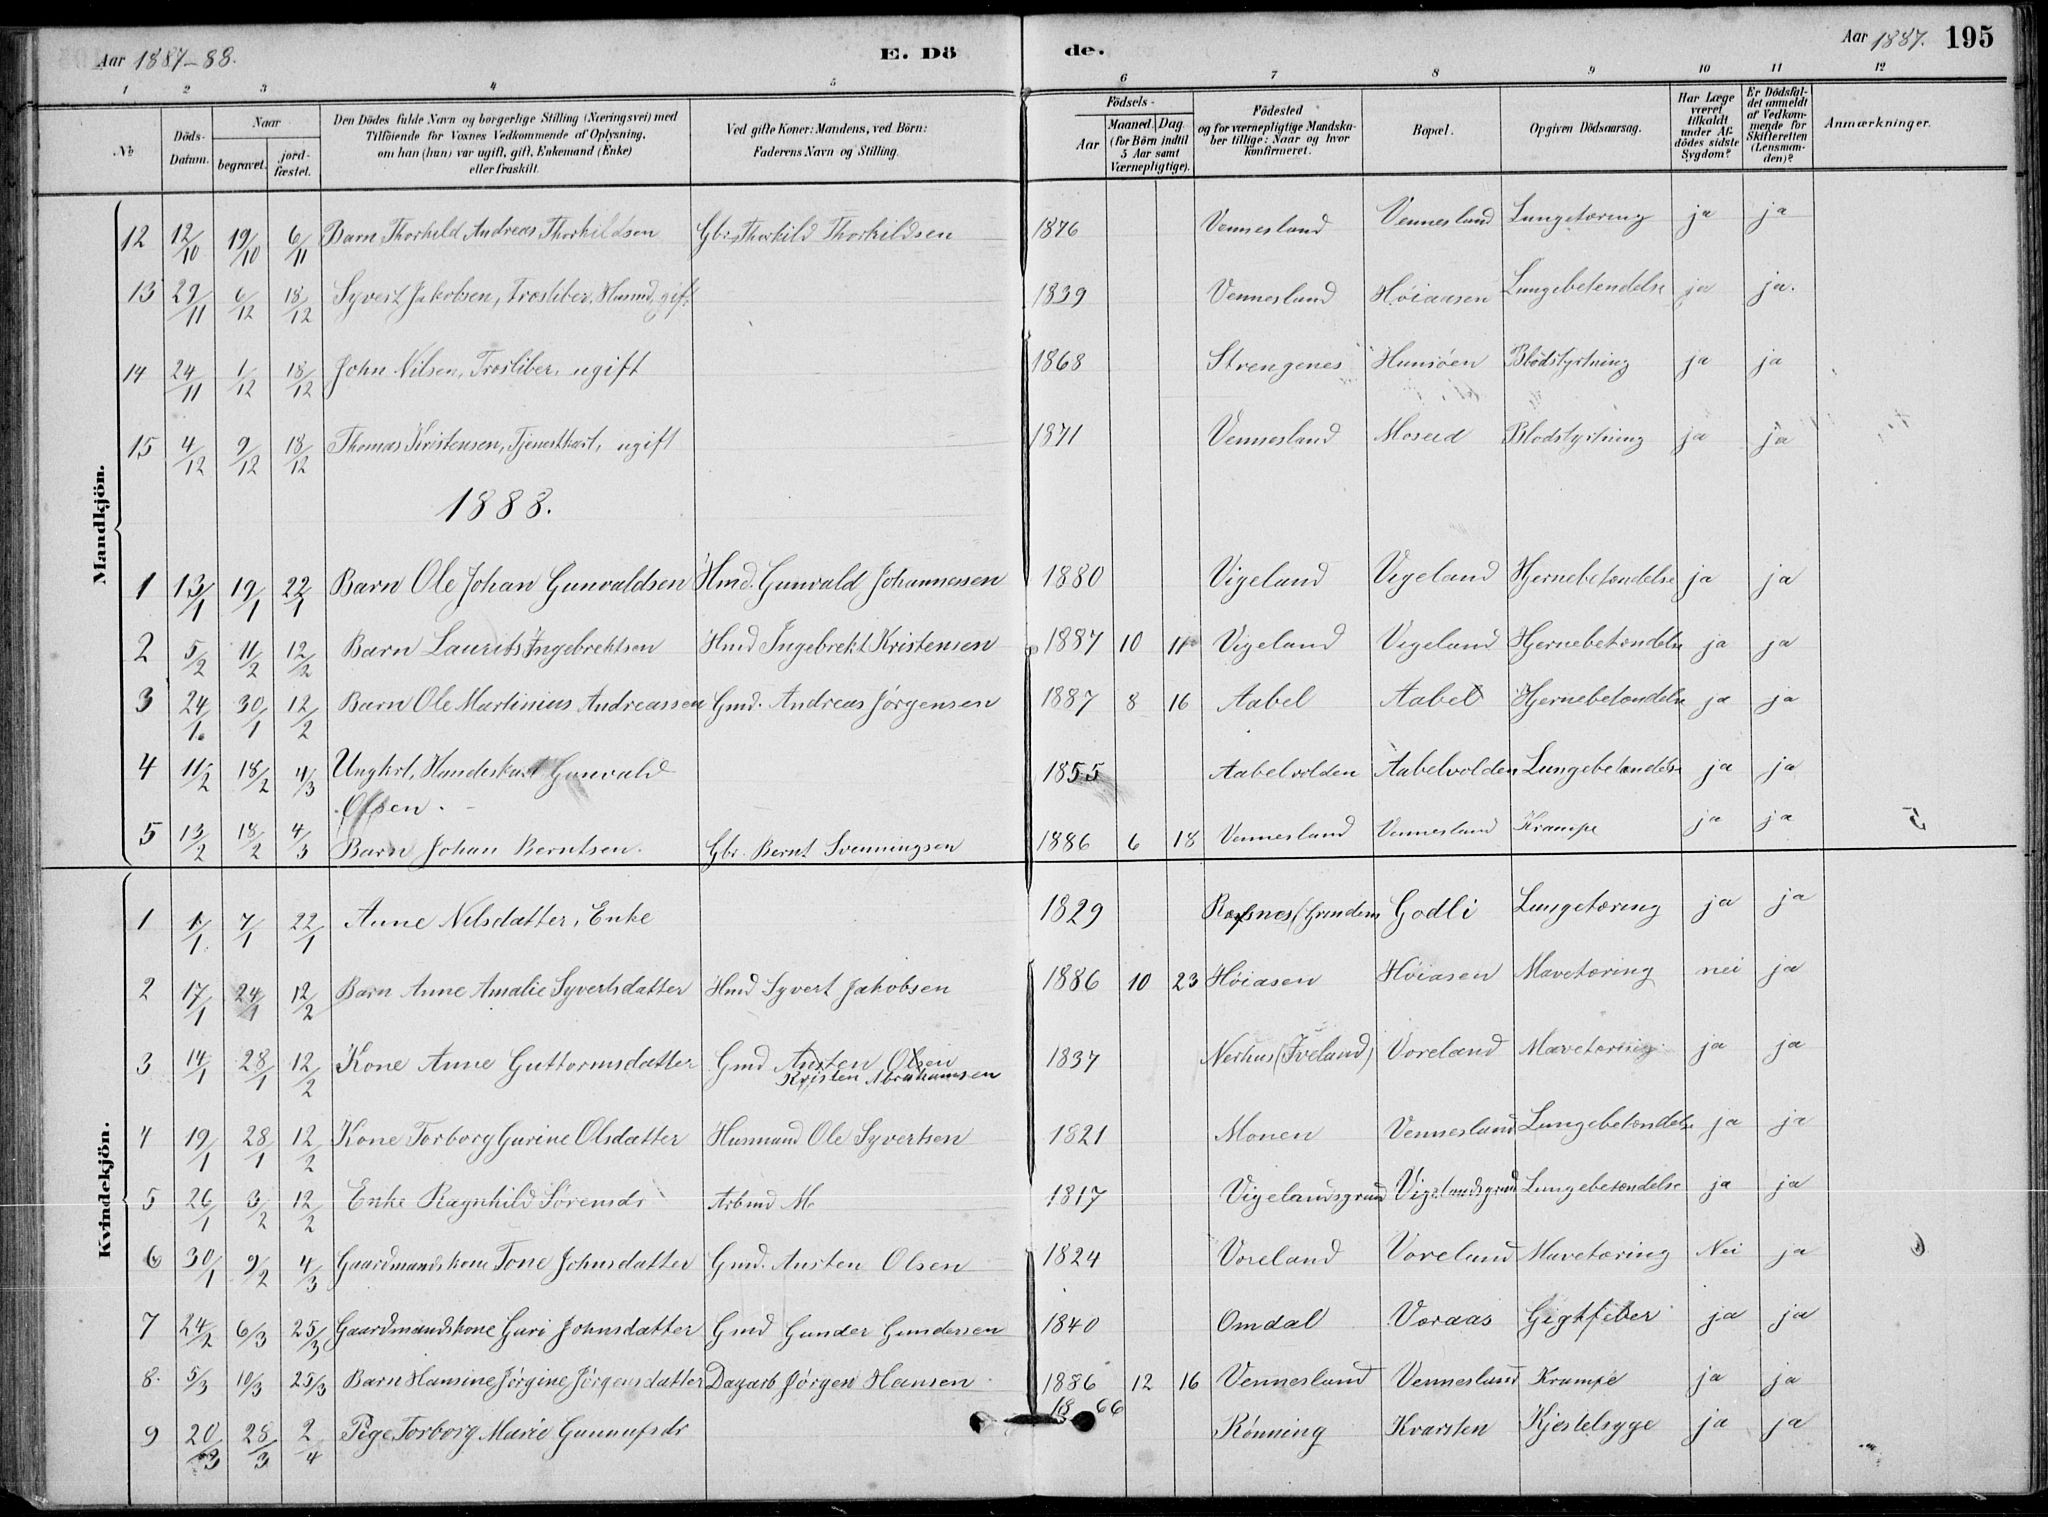 Aar 1887-88. E. Dö de. Aar 1887. 195
1 2 3 4 5 6 7 8 9 10 11 12
No. Döds-Datum. Naar begravet. jordfæstet. Den Dödes fulde Navn og borgerlige Stilling (Næringsvei) med Tilföiende for Voxnes Vedkommende af Oplysning, om han (hun) var ugift, gift, Enkemand (Enke) eller fraskilt. Ved gifte Koner: Mandens, ved Börn: Faderens Navn og Stilling. Födsels- Aar Maaned. Dag. (for Börn indtil 5 Aar samt Værnepligtige). Födested og for værnepligtige Mandskaber tillige: Naar og hvor konfirmeret. Bopæl. Opgiven Dödsaarsag. Har Læge været tilkaldt under Afdödes sidste Sygdom? Er Dödsfaldet anmeldt af Vedkommende for Skifteretten (Lensmanden)? Anmærkninger.
Mandkjön.
12 12/10 19/10 6/11 Barn Thorkild Andreas Thorkildsen Gbr. Thorkild Thorkildsen 1876 Vennesland Vennesland Lungetæring ja ja
13 29/11 6/12 18/12 Syvert Jakobsen, Trosliber, Husmd, gift. 1839 Vennesland Høiaasen Lungebetændelse ja ja.
14 24/11 1/12 18/12 John Nilsen, Trosliber, ugift 1868 Strengenes Hunsøen Blodstyrtning ja ja
15 4/12 9/12 18/12 Thomas Kristensen, Tjenestkarl, ugift 1871 Vennesland Moseid Blodstyrtning ja ja
1888.
1 13/1 19/1 22/1 Barn Ole Johan Gunvaldsen Hmd. Gunvald Johannessen 1880 Vigeland Vigeland Hjernebetændelse ja ja
2 5/2 11/2 12/2 Barn Laurits Ingebrektsen Hmd Ingebrekt Kristensen 1887 10 11 Vigeland Vigeland Hjernebetændelse ja ja
3 24/1 30/1 12/2 Barn Ole Martinius Andreassen Gmd. Andreas Jørgensen 1887 8 16 Aabel Aabel Hjernebetændelse ja ja
4 11/2 18/2 4/3 Ungkrl, Handelskarl Gunvald 1855 Aabelvolden Aabelvolden Lungebetændelse ja ja
Olsen.
5 13/2 18/2 4/3 Barn Johan Berntsen. Gbr. Bernt Svenningsen 1886 6 18 Vennesland Vennesland Krampe ja ja 5
Kvindekjön.
1 1/1 7/1 22/1 Anne Nilsdatter, Enke 1829 Godli Lungetæring ja ja
2 17/1 24/1 12/2 Barn Anne Amalie Syvertsdatter Hmd Syvert Jakobsen 1886 10 23 Høiasen Høiasen Mavetæring nei ja
3 14/1 28/1 12/2 Kone Anne Guttormsdatter Gmd Austen Olsen 1837 Nerhus (Iveland) Voreland Mavetæring ja ja
Kristen Abrahamsen
4 19/1 28/1 12/2 Kone Torborg Gurine Olsdatter Husmand Ole Syvertsen 1821 Monen Vennesland Lungebetændelse ja ja
5 26/1 3/2 12/2 Enke Ragnhild Sørensdr Arbmd M 1817 Vigelandsgrund Vigelandsgrund Lungebetændelse ja ja
6 30/1 9/2 4/3 Gaardmandskone Tone Johnsdatter Gmd. Austen Olsen 1824 Voreland Voreland Mavetæring Nei ja
7 24/2 6/3 25/3 Gaardmandskone Guri Johnsdatter Gmd Gunder Gundersen 1840 Omdal Voraas Gigtfeber ja ja
8. 5/3 10/3 25/3 Barn Hansine Jørgine Jørgensdatter Dagarb Jørgen Hansen 1886 12 16 Vennesland Vennesland Krampe ja ja
9 20/3 28/3 2/4 Pige Torborg Marie Gunnufsdr 1866 Rønning Kvarsten Kjertelsyge ja ja